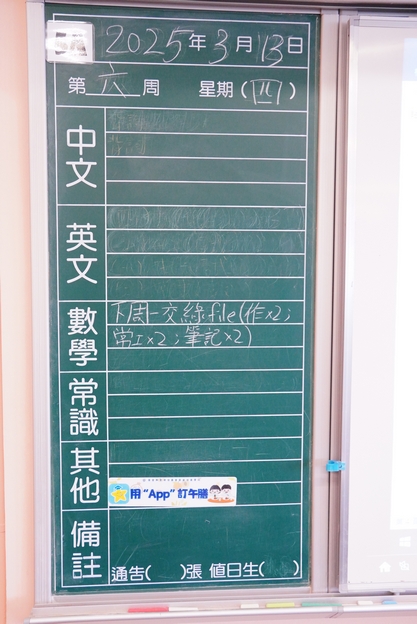 2025年3月13日
第六周 星期(四)
中文
英文
數學
下周一交綠file(作x2;
常工x2;筆記x2)
常識
其他
用"App"訂午膳
備註
通告( )張 值日生( )